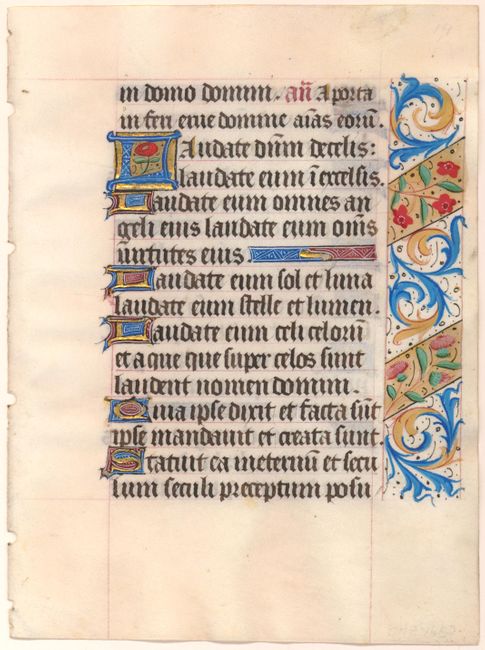 in domo domini. añ A porta
in feri erue domine aias eorũ.
Laudate dñm decelis:
laudate eum ĩ excelsis.
Laudate eum omnes an
geli eius laudate eum oms̃
uirtutes eius
Laudate eum sol et luna
laudate eum stelle et lumen.
Laudate eum celi celorũ
et aque que super celos sunt
laudent nomen domini.
Quia ipse dixit et facta sũt
ipse mandauit et creata sunt.
Statuit ea ineternũ et secu
lum seculi preceptum posu